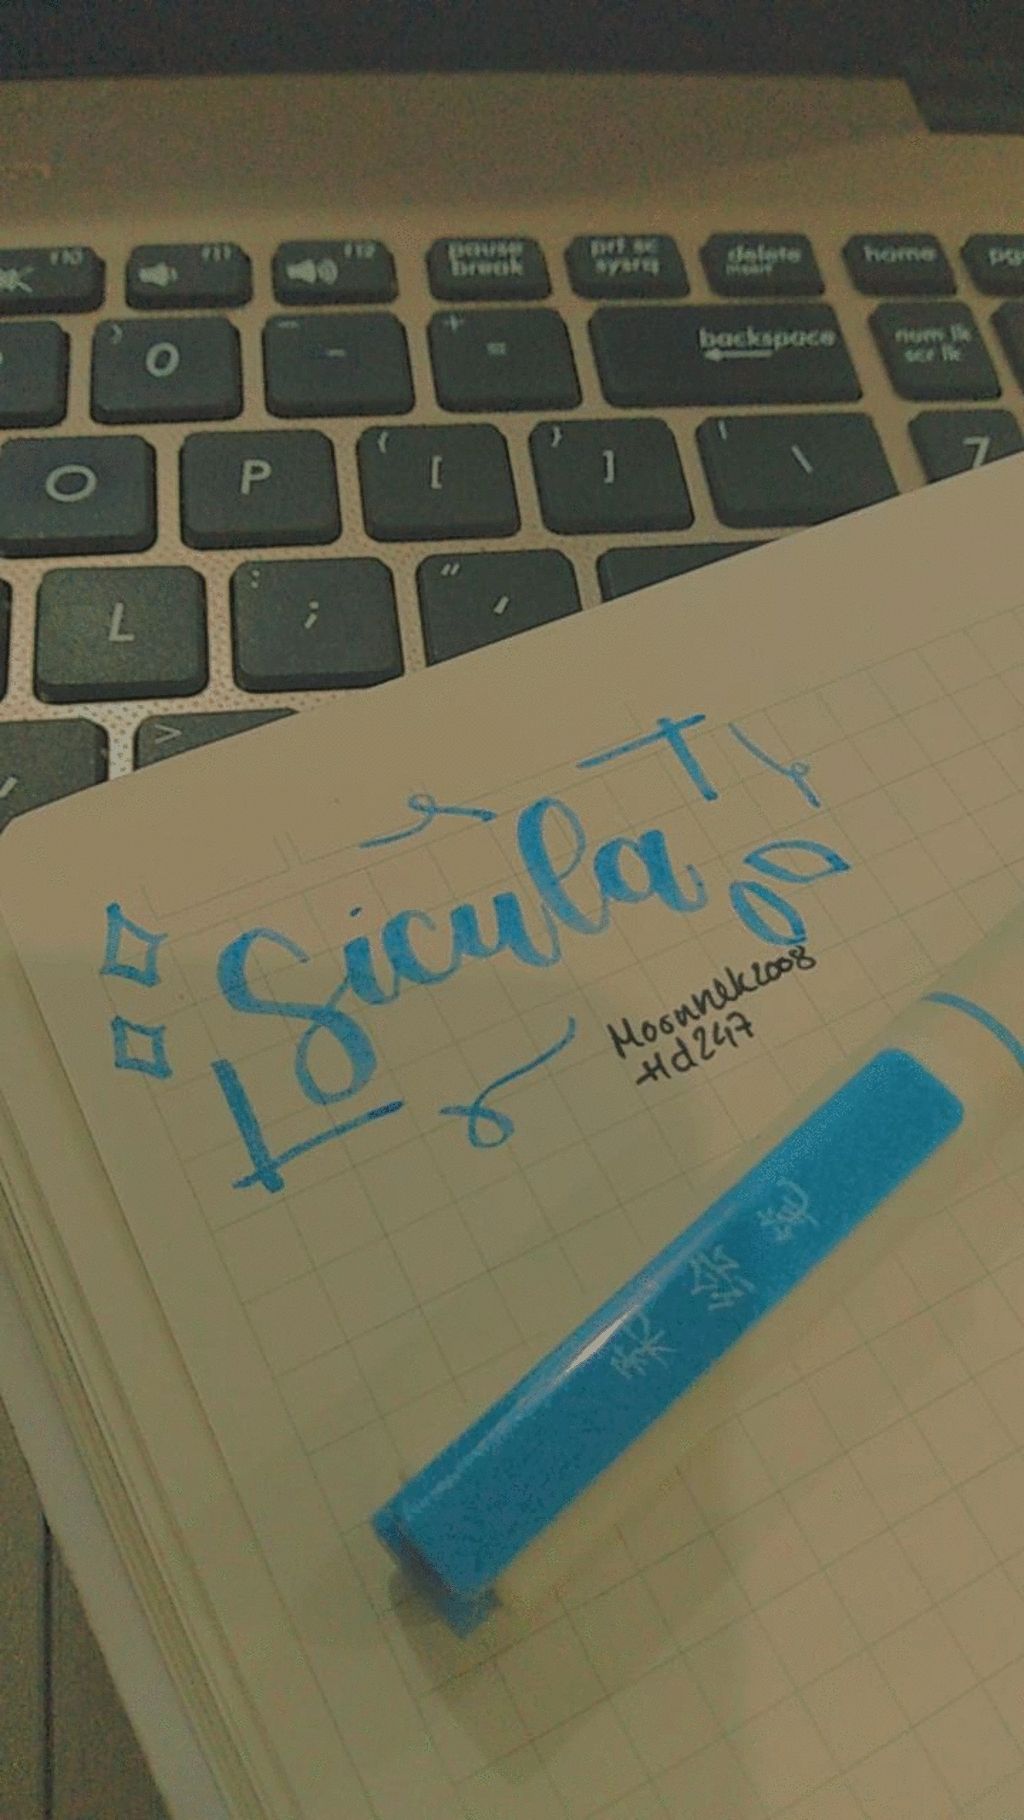 f10 f11 f12 pause break prt sc sysrq delete insert home
) 0 _ - + = backspace num lk scr lk
O P { [ } ] | \ 7
L : ; " '
>
Sicula
Moonnek2008
Hd247
彩绘笔